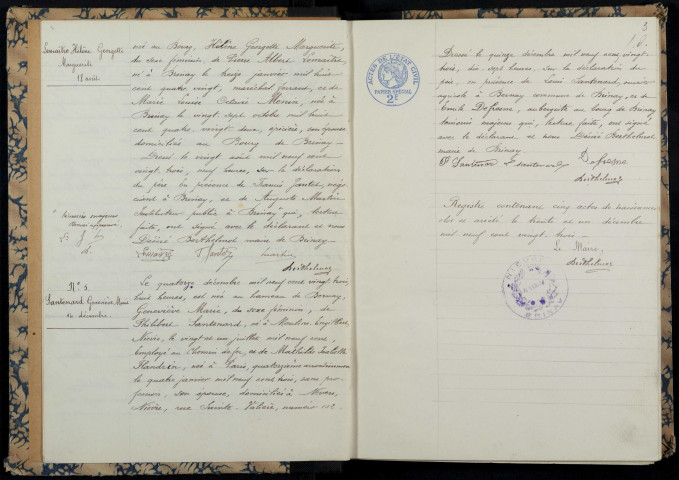 Lemaitre Hélène Georgette
Marguerite
18 août.
née au Bourg, Hélène Georgette Marguerite,
du sexe féminin, de Pierre Albert Lemaitre,
né à Brinay le treize janvier mil huit
cent quatre vingt, maréchal ferrand, et de
Marie Louise Octavie Monin, née à
Brinay le vingt sept octobre mil huit
cent quatre vingt deux, épicière, son épouse
domiciliés au Bourg de Brinay —
Dressé le vingt août mil neuf cent
vingt trois, neuf heures, sur la déclaration
du père en présence de
à Brinay, et de Auguste Martin
Instituteur public à Brinay qui, lecture
faite, ont signé avec le déclarant et nous
Désiré Berthelmot maire de Brinay.
Lemaitre Martin
Berthelmot
N° 5.
Santenard Geneviève Marie
14 décembre.
Le quatorze décembre mil neuf cent vingt trois
huit heures, est née au hameau de Bernay,
Geneviève Marie, du sexe féminin, de
Philibert Santenard, né à Moulins Engilbert,
Nièvre, le vingt et un juillet mil neuf cent,
employé au Chemin de fer, et de Mathilde Isabelle
Flandrin, née à Paris, quatorzième arrondissement
le quatre janvier mil neuf cent trois, sans pro-
fession, son épouse, domiciliés à Nevers,
Nièvre, rue Sainte Valière, numéro
3
ACTES DE L'ETAT CIVIL
PAPIER SPECIAL
2F
Dressé le quinze décembre mil neuf cent vingt-
trois, dix sept heures, sur la déclaration du
père, en présence de Louis Santenard, ouvrier
agricole à Bernay commune de Brinay, et de
Emile Defosne, aubergiste au bourg de Brinay
témoins majeurs qui, lecture faite, ont signé
avec le déclarant et nous Désiré Berthelmot
maire de Brinay.
P Santenard L Santenard Defosne
Berthelmot
Registre contenant cinq actes de naissances
clos et arrêté le trente et un décembre
mil neuf cent vingt trois —
Le Maire,
Berthelmot
BRINAY